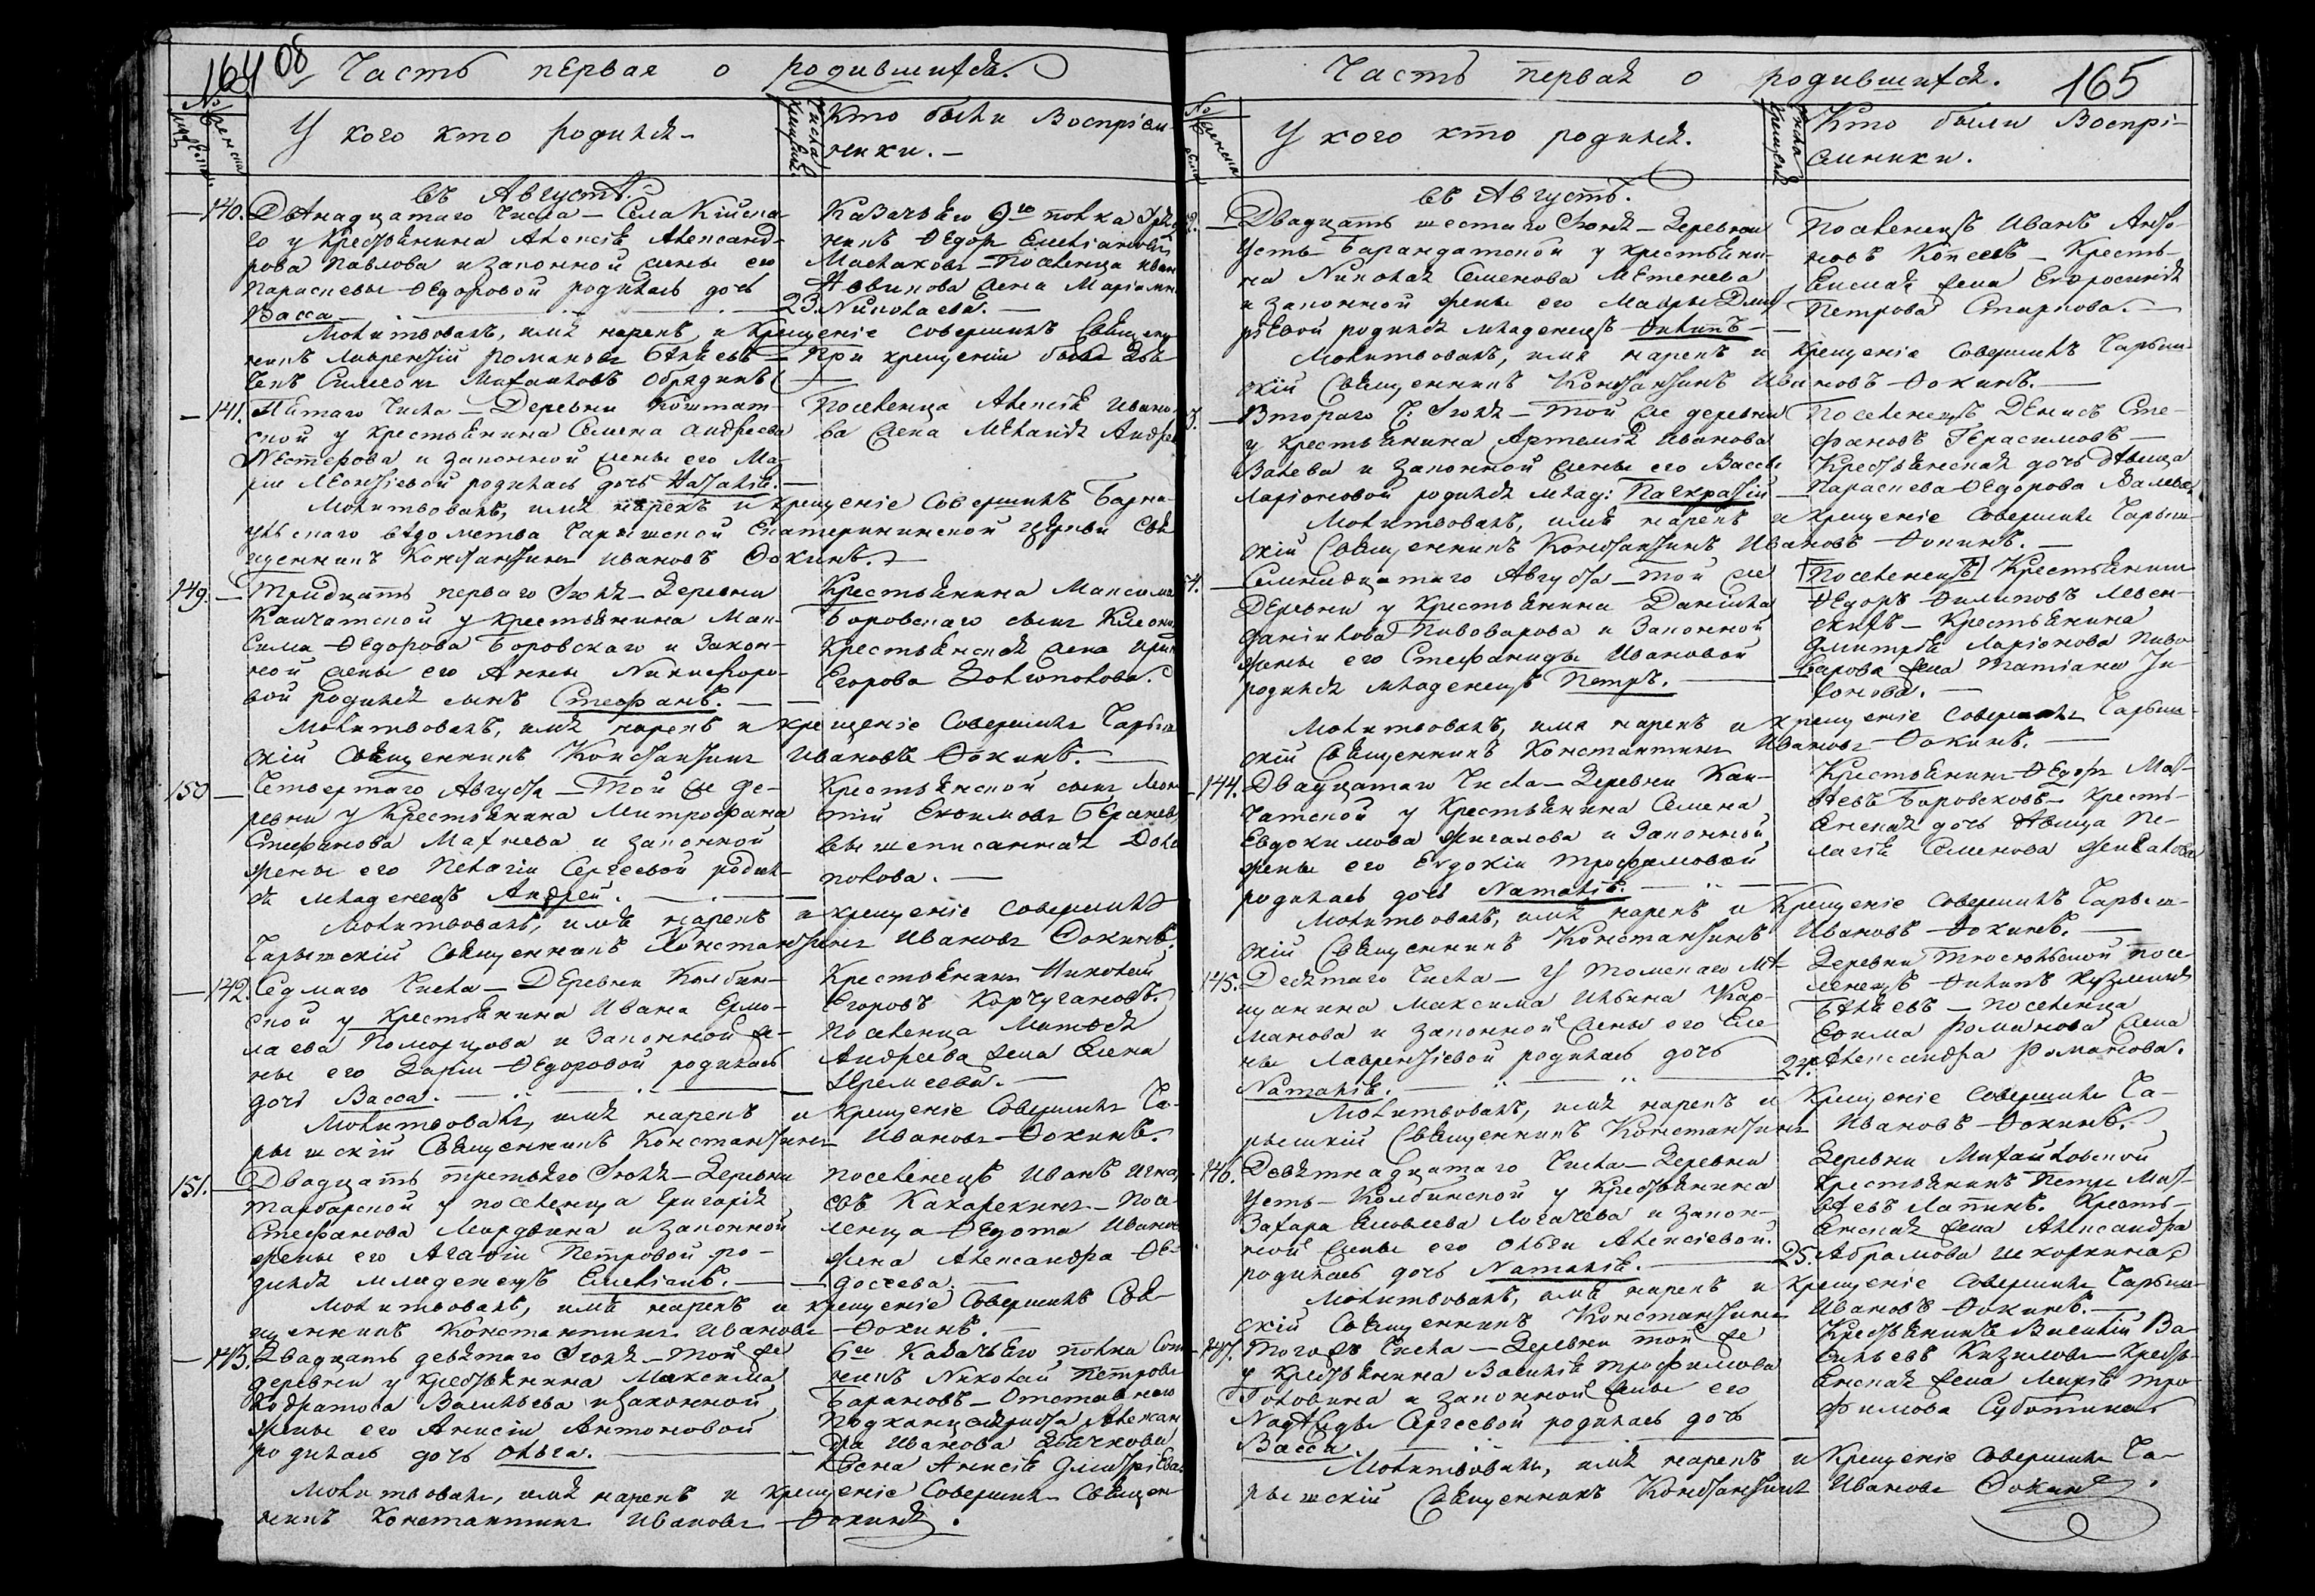 164 об Часть первая о родившихся.
№ У кого кто родился Числа крещенія Кто были Воспріем-
ники.
въ Августѣ.
140. Двѣнадцатаго Числа — Села
у Крестьянина Алексѣя Александ-
рова Павлова и законной жены его
Параскевы Ѳедоровой родилась дочь
Васса 23.
Казачьяго 9го полка
никъ Ѳедоръ Емельяновъ
Маслаковъ — Поселенца Иван
жена
Николаева.
Молитвовалъ, имя нарекъ и Крещеніе совершилъ Священ-
никъ Лаврентій Романовъ При крещеніи былъ Дья-
чекъ Симеонъ Михайловъ
141. Пятаго Числа — Деревни
ской у Крестьянина Семена Андреева
Нестерова и законной жены его Ма-
ріи Леонтіевой родилась дочь Наталія.
Поселенца Алексѣя Ивано-
ва жена Меланія Андре
Молитвовалъ, имя нарекъ и крещеніе Совершилъ Барна-
ульскаго вѣдомства Чарышской Екатерининской церкви Свя-
щенникъ Константинъ Ивановъ Ѳокинъ.
149. Тридцать перваго Іюля — Деревни
Камчатской у Крестьянина Мак-
сима Ѳедорова Боровскаго и Закон-
ной жены его Анны Никифоро-
вой родился сынъ Стефанъ.
Крестьянина Максима
Боровскаго сынъ
Крестьянская жена Ири
Егорова
Молитвовалъ, имя нарекъ и крещеніе Совершилъ Чарыш
скій Священникъ Константинъ Ивановъ Ѳокинъ.
150 Четвертаго Августа — Той же де-
ревни у Крестьянина Митрофана
Стефанова Махнева и законной
жены его Пелагіи Сергеевой родил-
ся младенецъ Андрей.
Крестьянской сынъ Леон
тій Екимовъ
вышеписанная
полова.
Молитвовалъ, имя нарекъ и крещеніе совершилъ
Чарышскій Священникъ Константинъ Ивановъ Ѳокинъ.
142. Седмаго Числа — Деревни Колбин-
ской у Крестьянина Ивана Ермо-
лаева Поморцова и Законной же-
ны его Даріи Ѳедоровой родилась
дочь Васса.
Крестьянинъ Николай
Егоровъ Корчугановъ.
Поселенца
Андреева жена Елена
Еремеева.
Молитвовалъ, имя нарекъ и Крещеніе Совершилъ Ча-
рышскій Священникъ Константинъ Ивановъ Ѳокинъ.
151. Двадцать третьяго Іюля — Деревни
у поселенца Григорія
Стефанова Мардвина и законной
жены его Агафіи Петровой ро-
дился младенецъ Емельянъ.
Поселенецъ Иванъ Игна
евъ — Посе-
ленца Ѳедота Иванова
жена Александра Ѳе-
досеева.
Молитвовалъ, имя нарекъ и крещеніе Совершилъ Свя-
щенникъ Константинъ Ивановъ Ѳокинъ.
143. Двадцать девятаго Іюля — той же
деревни у Крестьянина Максима
Кодратова Васильева и законной
жены его Анисіи Антоновой
родилась дочь Ольга.
6го Казачьяго полка Сот
никъ Николай Петровъ
Барановъ — Отставнаго
Подканцеляриста Алексан
дра Иванова
жена Анисія Дмитріева
Молитвовалъ, имя нарекъ и крещеніе Совершилъ Священ-
никъ Константинъ Ивановъ Ѳокинъ.
Часть первая о родившихся. 165
№ У кого кто родился. Числа крещенія Кто были Воспрі-
емники.
въ Августѣ.
Двадцать шестаго Іюля — Деревни
Усть-Барандатской у крестьяни-
на Николая Семенова Метенева
и законной жены его Мавры Дмит
ріевой родился младенецъ Филипъ
Поселенецъ Иванъ
новъ — Кресть-
янская жена Евфросинія
Петрова Старкова.
Молитвовалъ, имя нарекъ и крещеніе Совершилъ Чарыш-
скій Священникъ Константинъ Ивановъ Ѳокинъ.
Втораго Ч. Іюля — той же деревни
у крестьянина Артемія Иванова
Валева и законной жены его Вассы
Ларіоновой родился млад: Панкратій
Поселенецъ Денисъ Сте-
фановъ Герасимовъ —
Крестьянская дочь дѣвица
Параскева Ѳедорова
Молитвовалъ, имя нарекъ и крещеніе Совершилъ Чарыш-
скій Священникъ Константинъ Ивановъ Ѳокинъ.
Семнадцатаго Августа — той же
Деревни у Крестьянина Даніила
Даніилова Пивоварова и Законной
жены его Стефаниды Ивановой
родился младенецъ Петръ.
Поселенецъ Крестьянинъ
Ѳедоръ Филиповъ
Крестьянина
Дмитрія Ларіонова Пиво
варова жена Татіана
Молитвовалъ, имя нарекъ и крещеніе совершилъ Чарыш-
скій Священникъ Константинъ Ивановъ Ѳокинъ.
144. Двадцатаго Числа — Деревни Кам-
чатской у Крестьянина Семена
Евдокимова Жигалова и Законной
жены его Евдокіи Трофимовой
родилась дочь Наталія.
Крестьянинъ Ѳедоръ Мат-
вѣевъ Боровсковъ — Кресть-
янская дочь дѣвица Пе-
лагія Семенова
Молитвовалъ, имя нарекъ и Крещеніе Совершилъ Чарыш-
скій Священникъ Константинъ Ивановъ Ѳокинъ.
145. Десятаго Числа — У Томскаго Мѣ-
щанина Максима Ильина Кар-
манова и законной жены его Еле-
ны Лаврентіевой родилась дочь
Наталія. 24.
Деревни посе
ленецъ Филипъ Кузминъ
— Поселенца
Ефима Романова жена
Александра Романова.
Молитвовалъ, имя нарекъ и Крещеніе Совершилъ Ча-
рышскій Священникъ Константинъ Ивановъ Ѳокинъ.
146. Девятнадцатаго Числа — Деревни
Усть-Колбинской у Крестьянина
Захара Яковлева Логачева и закон-
ной жены его Ольги Алексіевой
родилась дочь Наталія. 25.
Деревни Михайловской
Крестьянинъ Петръ Мат-
вѣевъ Лапинъ. Кресть-
янская жена Александра
Абрамова Шкоркина
Молитвовалъ, имя нарекъ и Крещеніе Совершилъ Чарыш-
скій Священникъ Константинъ Ивановъ Ѳокинъ.
147. Тогожъ Числа — Деревни той же
у Крестьянина Василія Трофимова
Головина и законной жены его
Надѣжды Сергеевой родилась дочь
Васса.
Крестьянинъ Василій Ва-
сильевъ — Кресть-
янская жена Марія Тро-
фимова Суботина
Молитвовалъ, имя нарекъ и Крещеніе Совершилъ Ча-
рышскій Священникъ Константинъ Ивановъ Ѳокинъ.